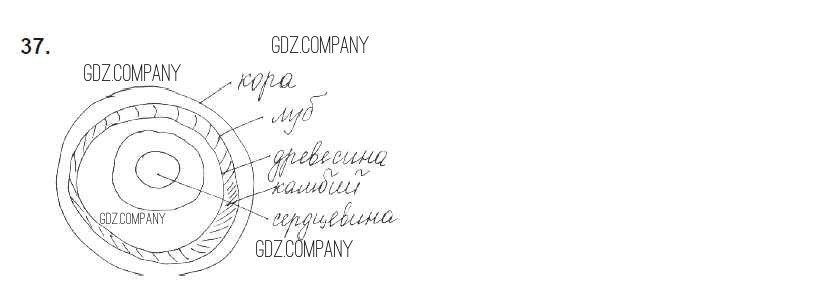 37.
GDZ.COMPANY
GDZ.COMPANY
кора
луб
древесина
камбий
сердцевина
GDZ.COMPANY
GDZ.COMPANY